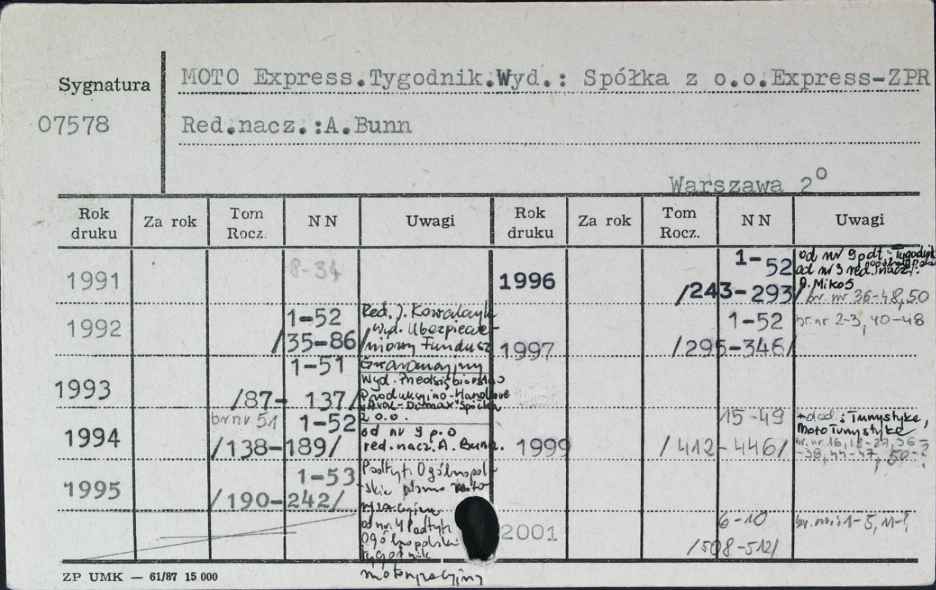 Sygnatura
07578
MOTO Express.Tygodnik.Wyd.: Spółka z o.o.Express-ZPR
Red.nacz.:A.Bunn
Warszawa 2°
Rok druku Za rok Tom Rocz. NN Uwagi Rok druku Za rok Tom Rocz. NN Uwagi
1991 8-34
1992 1-52 /35-86/
Red. J. Kowalczyk
Wyd. Ubezpiecze-
niowy Fundusz
Gwarancyjny
1993 1-51 /87- 137/
Wyd. Przedsiębiorstwo
Produkcyjno-Handlowe
Spółka
z o.o.
1994 br nr 51 1-52 /138-189/
od nr 9 p.o
red.nacz. A. Bunn
1995 1-53 /190-242/
Podtyt. Ogólnopol-
skie pismo moto-
ryzacyjne
od nr 4 Podtyt.
Ogólnopolski
tygodnik
motoryzacyjny
1996 1-52 /243-293/
od nr 9 pdt.: Tygodnik
od nr 3 red. nacz.:
Mikos
br. nr 36-48,50
1997 1-52 /295-346/
br.nr 2-3, 40-48
1999 15-49 /412-446/
+dod.: Turystyka,
MotoTurystyka
-38, 44-47, 50-?
2001 6-10 /508-512/
br. nr 1-5, 11-?
ZP UMK — 61/87 15 000